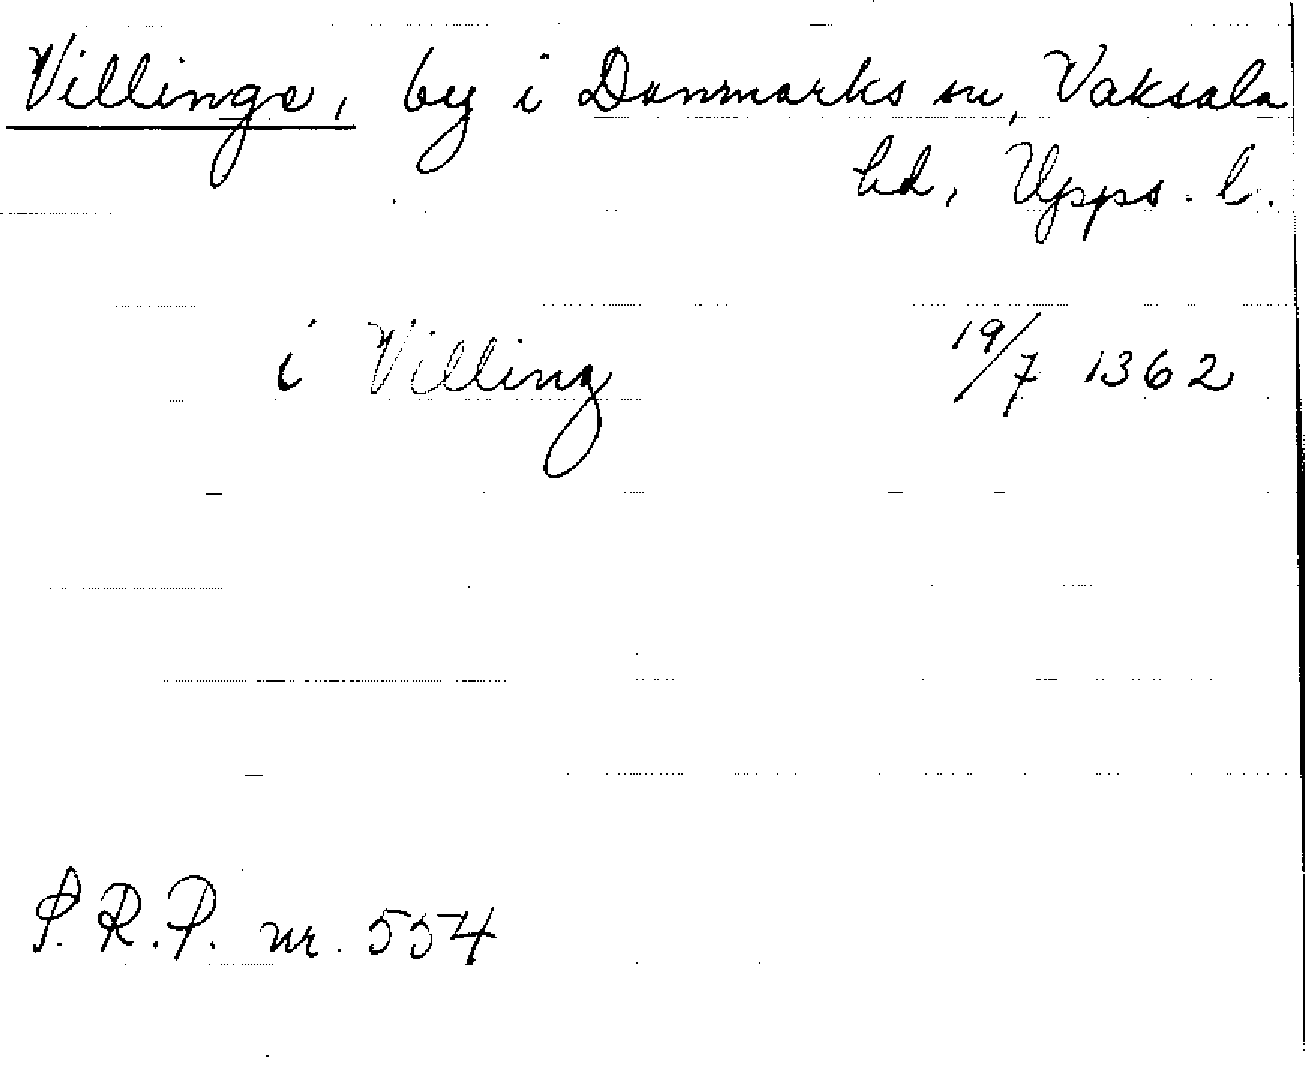 Villinge, by i Danmarks sn, Vaksala
hd, Upps. l.
i Villing 19/7 1362
S.R.P. nr. 554